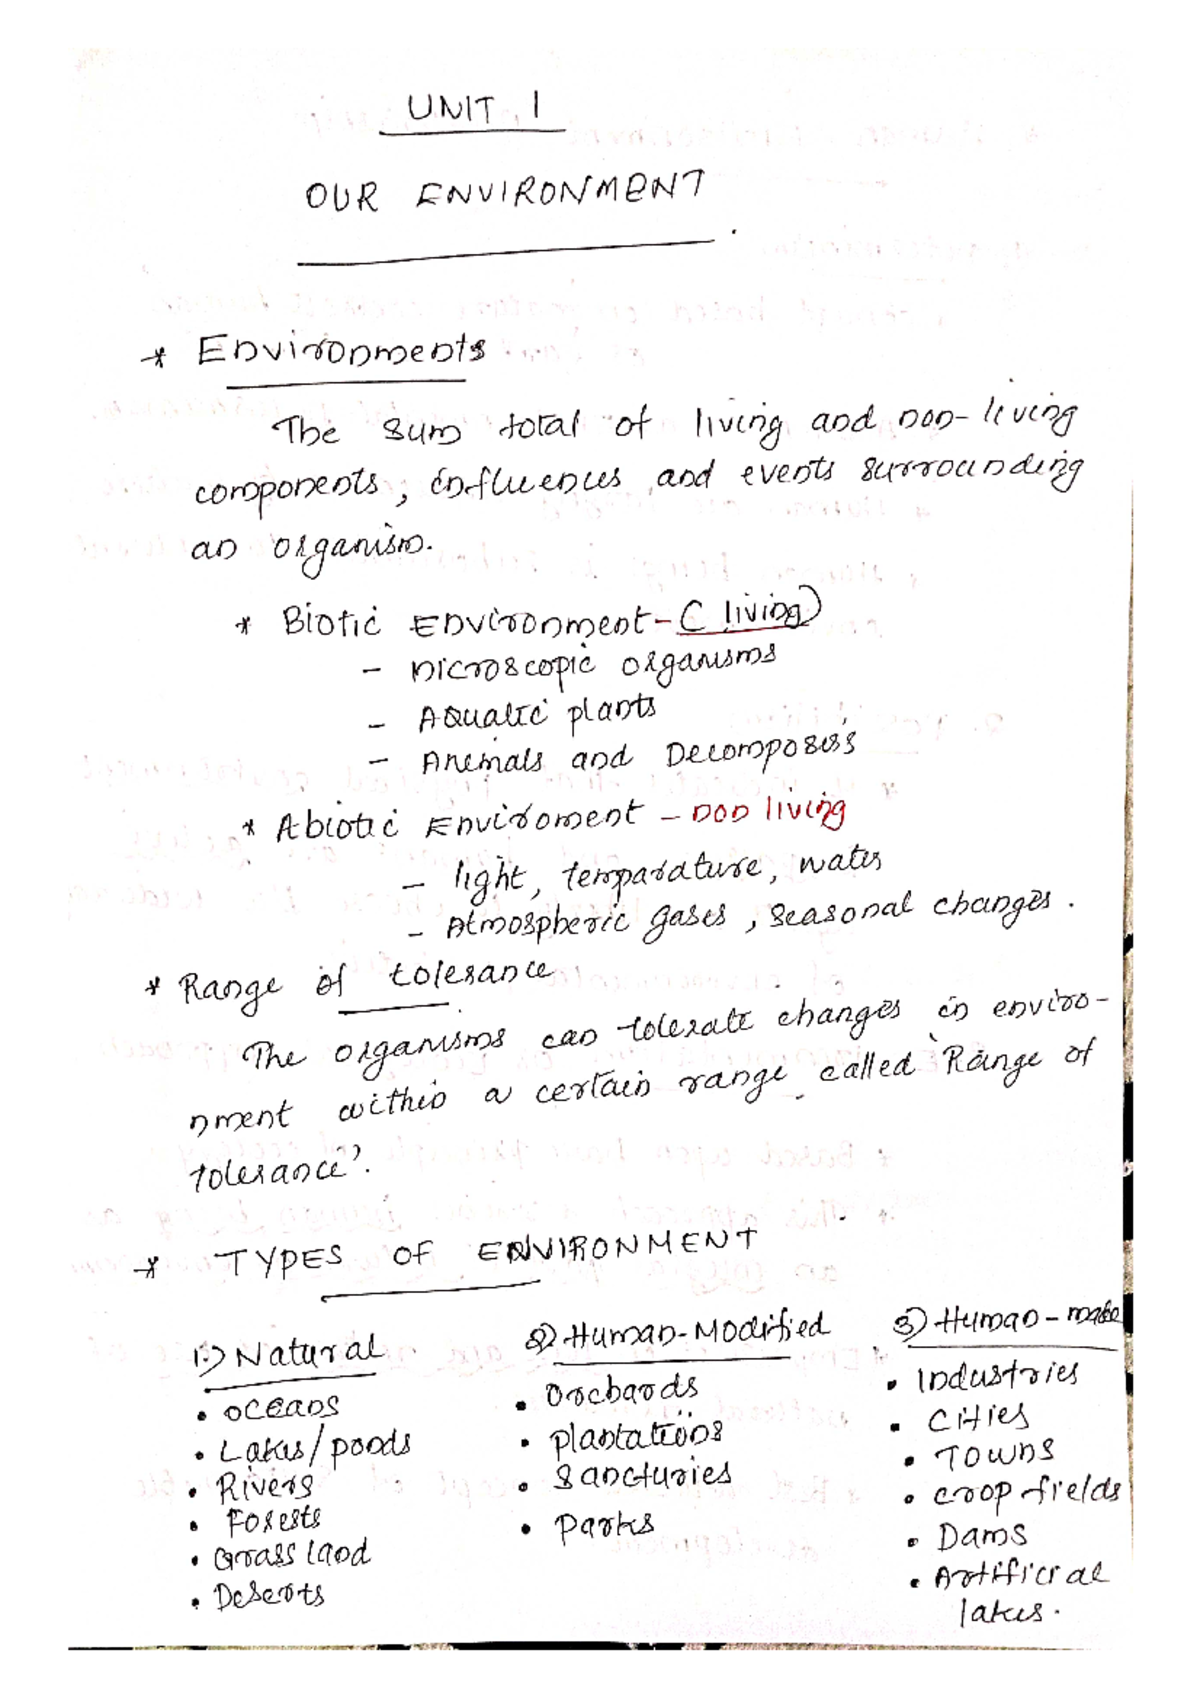 UNIT 1
OUR ENVIRONMENT
* Environments
The sum total of living and non-living
components, influences and events surrounding
an organism.
* Biotic Environment - (living)
- microscopic organisms
- Aquatic plants
- Animals and Decomposers
* Abiotic Enviroment - non living
- light, temparature, water
- Atmospheric gases, seasonal changes.
* Range of tolerance
The organisms can tolerate changes in enviro-
nment within a certain range called 'Range of
tolerance'.
* TYPES OF ENVIRONMENT
1.) Natural
• Oceans
• Lakes/ponds
• Rivers
• Forests
• Grassland
• Deserts
2) Human-Modified
• Orchards
• plantations
• Sancturies
• parks
3) Human-made
• Industries
• Cities
• Towns
• crop fields
• Dams
• Artificial
lakes.